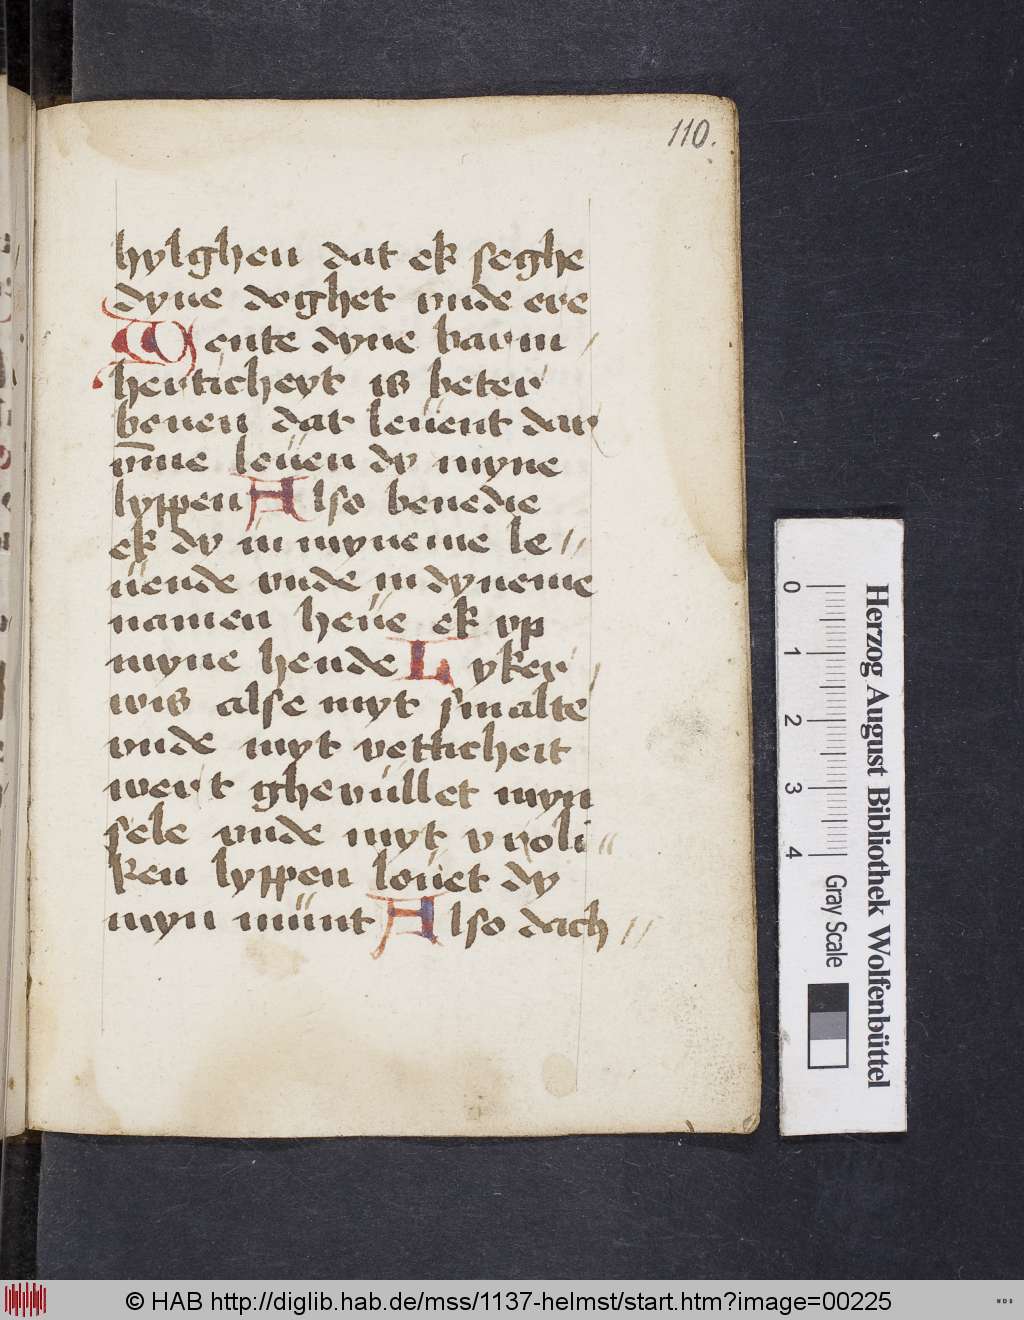 110.
hylghen dat ek seghe
dyne doghet vnde ere
Wente dyne barm /
herticheyt is beter
bouen dat leuent dar
v̄me leuen dy myne
lyppen Also benedie
ek dy in myneme le //
uende vnde in dyneme
namen heue ek vp
myne hende Lyker /
wis alse myt smalte
vnde myt vetticheit
wert ghevullet myn
sele vnde myt vroli //
ken lyppen louet dy
myn munt Also dich //
0 1 2 3 4
Herzog August Bibliothek Wolfenbüttel
Gray Scale
© HAB http://diglib.hab.de/mss/1137-helmst/start.htm?image=00225